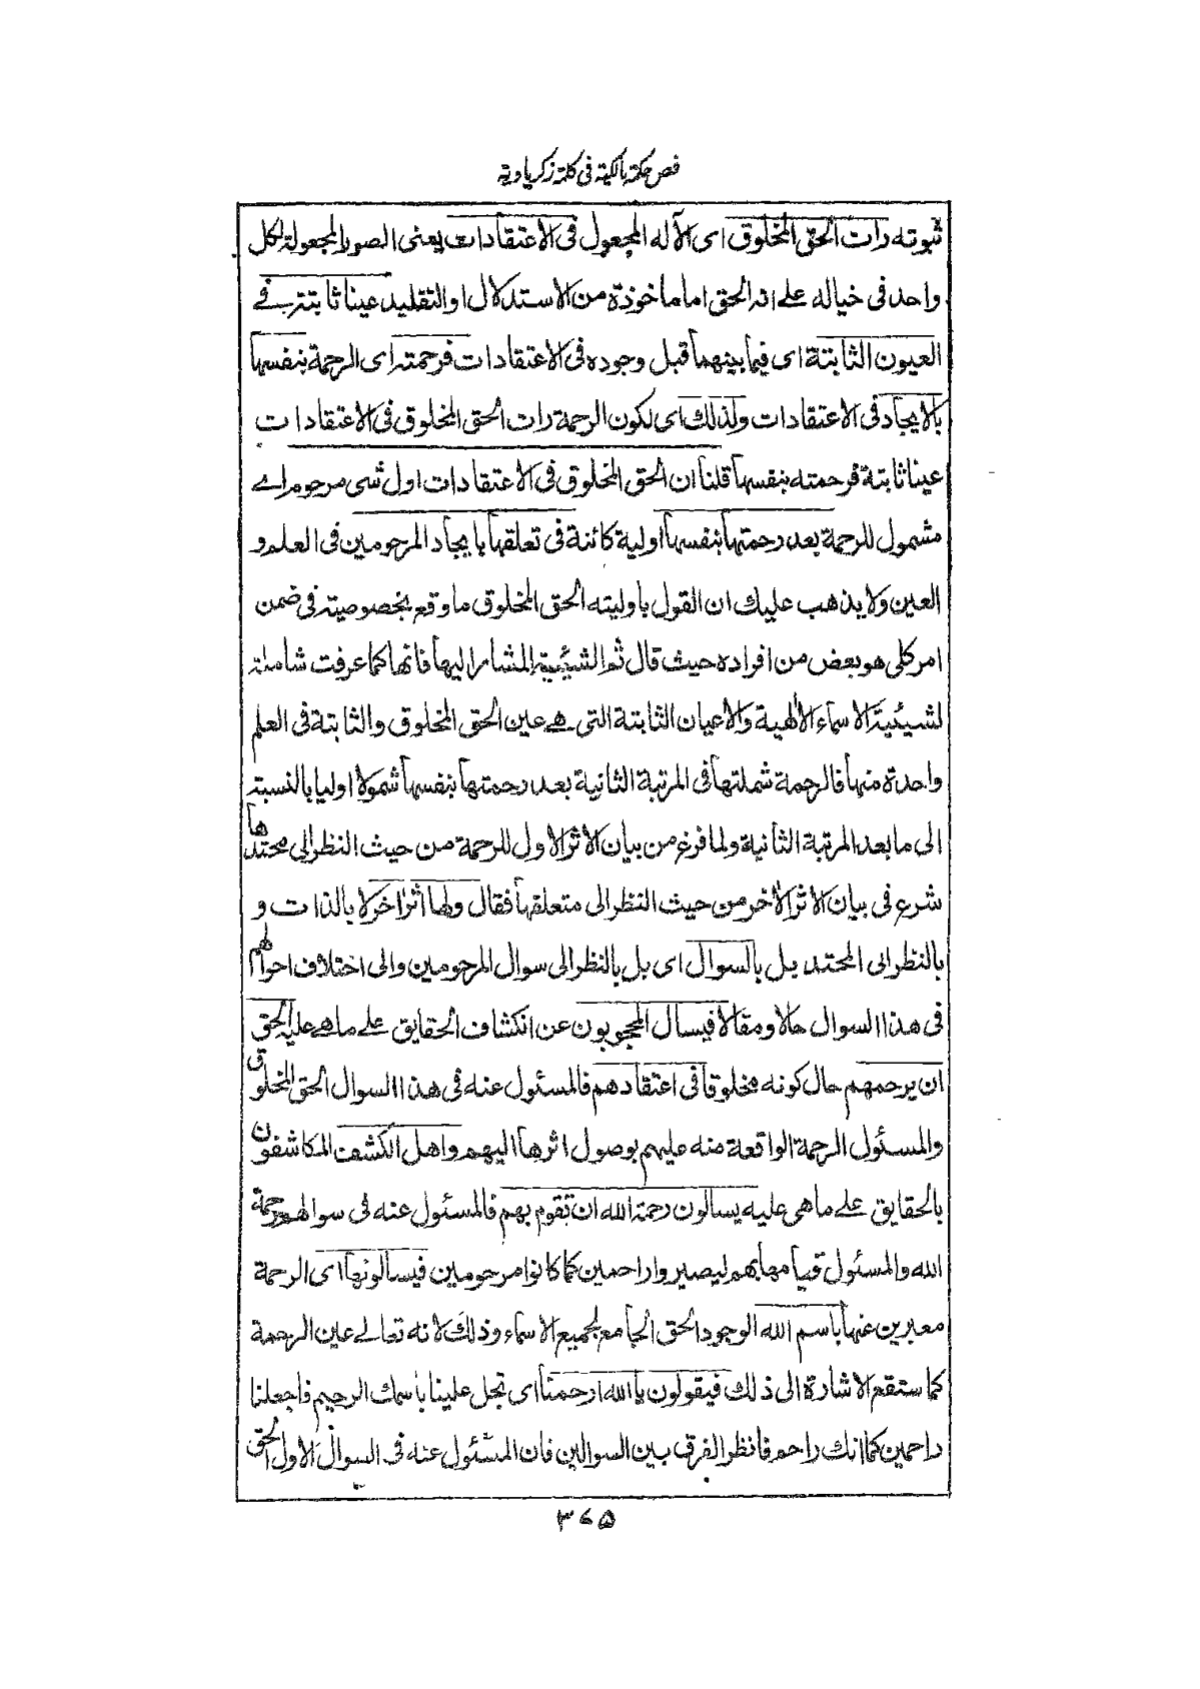 فص حكمة مالكية فى كلمة زكرياوية
ثبوته رات الحق المخلوق اى الآله المجعول فى الاعتقادات يعنى الصور المجعولة لكل
واحد فى خياله على انه الحق اما ماخوذة من الاستدلال او التقليد عينا ثابتة فى
العيون الثابتة اى فيما بينهما قبل وجوده فى الاعتقادات فرحمته اى الرحمة بنفسها
بالايجاد فى الاعتقادات ولذلك اى لكون الرحمة رات الحق المخلوق فى الاعتقادات
عينا ثابتة فرحمته بنفسها قلنا ان الحق المخلوق فى الاعتقادات اول شى مرحوم اے
مشمول للرحمة بعد رحمتها بنفسها اولية كائنة فى تعلقها بايجاد المرحومين فى العلم و
العين ولا يذهب عليك ان القول باوليته الحق المخلوق ما وقع بخصوصيته فى ضمن
امر كلى هو بعض من افراده حيث قال ثم الشيئية المشار اليها فانها كما عرفت شاملة
لشيئية الاسماء الالهية والاعيان الثابتة التى هے عين الحق المخلوق والثابتة فى العلم
واحدة منها فالرحمة شملتها فى المرتبة الثانية بعد رحمتها بنفسها شمولا اوليا بالنسبة
الى ما بعد المرتبة الثانية ولما فرغ من بيان الاثر الاول للرحمة من حيث النظر الى محتدها
شرع فى بيان الاثر الاخر من حيث النظر الى متعلقها فقال ولها اثر اخر لا بالذات و
بالنظر الى المحتد بل بالسوال اى بل بالنظر الى سوال المرحومين والى اختلاف احوالهم
فى هذا السوال حالا ومقالا فيسال المحجوبون عن انكشاف الحقايق على ما هے عليه الحق
ان يرحمهم حال كونه مخلوقا فى اعتقادهم فالمسئول عنه فى هذا السوال الحق المخلوق
والمسئول الرحمة الواقعة منه عليهم بوصول اثرها اليهم واهل الكشف المكاشفون
بالحقايق على ما هى عليه يسالون رحمة الله ان تقوم بهم فالمسئول عنه فى سوالهم رحمة
الله والمسئول قيامها بهم ليصيروا راحمين كما كانوا مرحومين فيسالونها اى الرحمة
معبرين عنها باسم الله الوجود الحق الجامع لجميع الاسماء وذلك لانه تعالے عين الرحمة
كما ستقع الاشارة الى ذلك فيقولون يا الله ارحمنا اى تجل علينا باسمك الرحيم فاجعلنا
راحمين كما انك راحم فانظر الفرق بين السوالين فان المسئول عنه فى السوال الاول الحق
۳۶۵